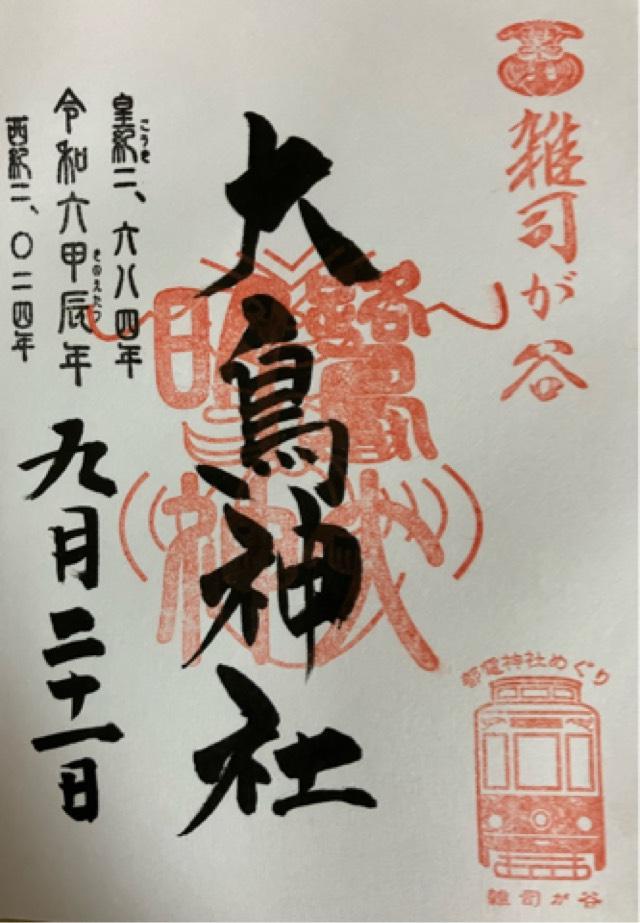 雑司が谷
大鳥神社
皇紀二、六八四年
こうき
令和六甲辰年
きのえたつ
西紀二、〇二四年
九月二十一日
都電神社めぐり
雑司が谷